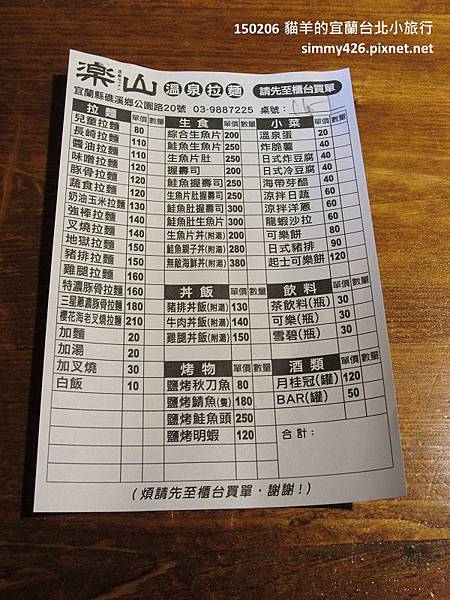 150206 貓羊的宜蘭台北小旅行
simmy426.pixnet.net
楽山 溫泉拉麵 請先至櫃台買單
宜蘭縣礁溪鄉公園路20號 03-9887225 桌號:
拉麵 單價 數量
兒童拉麵 80
長崎拉麵 110
醬油拉麵 110
味噌拉麵 110
豚骨拉麵 120
蔬食拉麵 120
奶油玉米拉麵 130
強棒拉麵 130
叉燒拉麵 140
地獄拉麵 150
豬排拉麵 150
雞腿拉麵 150
特濃豚骨拉麵 160
三星蔥濃豚骨拉麵 180
櫻花海老叉燒拉麵 210
加麵 20
加湯 20
加叉燒 30
白飯 10
生食 單價 數量
綜合生魚片 200
鮭魚生魚片 250
生魚片肚 250
握壽司 200
鮭魚握壽司 250
生魚片肚握壽司 250
鮭魚肚握壽司 300
生魚片丼(附湯) 200
鮭魚親子丼(附湯) 280
無敵海鮮丼(附湯) 380
丼飯 單價 數量
豬排丼飯(附湯) 130
牛肉丼飯(附湯) 140
雞腿丼飯(附湯) 150
烤物 單價 數量
鹽烤秋刀魚 80
鹽烤鯖魚(隻) 180
鹽烤鮭魚頭 250
鹽烤明蝦 120
小菜 單價 數量
溫泉蛋 20
炸脆薯 40
日式炸豆腐 40
日式冷豆腐 40
海帶芽醋 40
涼拌日蔬 60
涼拌洋蔥 60
龍蝦沙拉 60
可樂餅 80
日式豬排 90
起士可樂餅 120
飲料 單價 數量
茶飲料(瓶) 30
可樂(瓶) 30
雪碧(瓶) 30
酒類 單價 數量
月桂冠(罐) 120
BAR(罐) 50
合計:
(煩請先至櫃台買單,謝謝!)